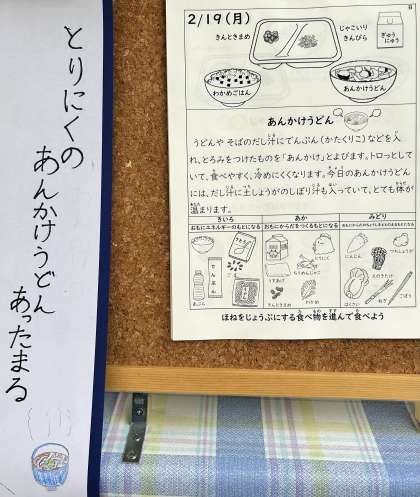 とりにくの
あんかけうどん
あったまる
2/19(月)
きんときまめ
じゃこいり
きんぴら
ぎゅう
にゅう
わかめごはん
あんかけうどん
あんかけうどん
うどんや そばのだし汁にでんぷん(かたくりこ)などを入
れ、とろみをつけたものを「あんかけ」とよびます。トロっとし
ていて、食べやすく、冷めにくくなります。今日のあんかけうどん
には、だし汁に土しょうがのしぼり汁も入っていて、とても体が
温まります。
きいろ
おもにエネルギーのもとになる
あか
おもにからだをつくるもとになる
みどり
ごま
でんぷん
あぶら
とりにく
ちりめんじゃこ
うすあげ
きんときまめ
わかめ
にんじん
つちしょうが
えのきたけ
はくさい
ねぎ
ごぼう
ほねをじょうぶにする食べ物を進んで食べよう